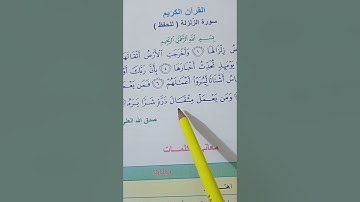 القرآن الكريم
سورة الزلزلة ( للحفظ )
بِسْمِ اللَّهِ الرَّحْمَٰنِ الرَّحِيمِ
زِلْزَالَهَا ١ وَأَخْرَجَتِ الْأَرْضُ أَثْقَالَهَا
يَوْمَئِذٍ تُحَدِّثُ أَخْبَارَهَا ٤ بِأَنَّ رَبَّكَ
أَشْتَاتًا لِّيُرَوْا أَعْمَالَهُمْ ٦ فَمَن
وَمَن يَعْمَلْ مِثْقَالَ ذَرَّةٍ شَرًّا يَرَهُ
صدق الله